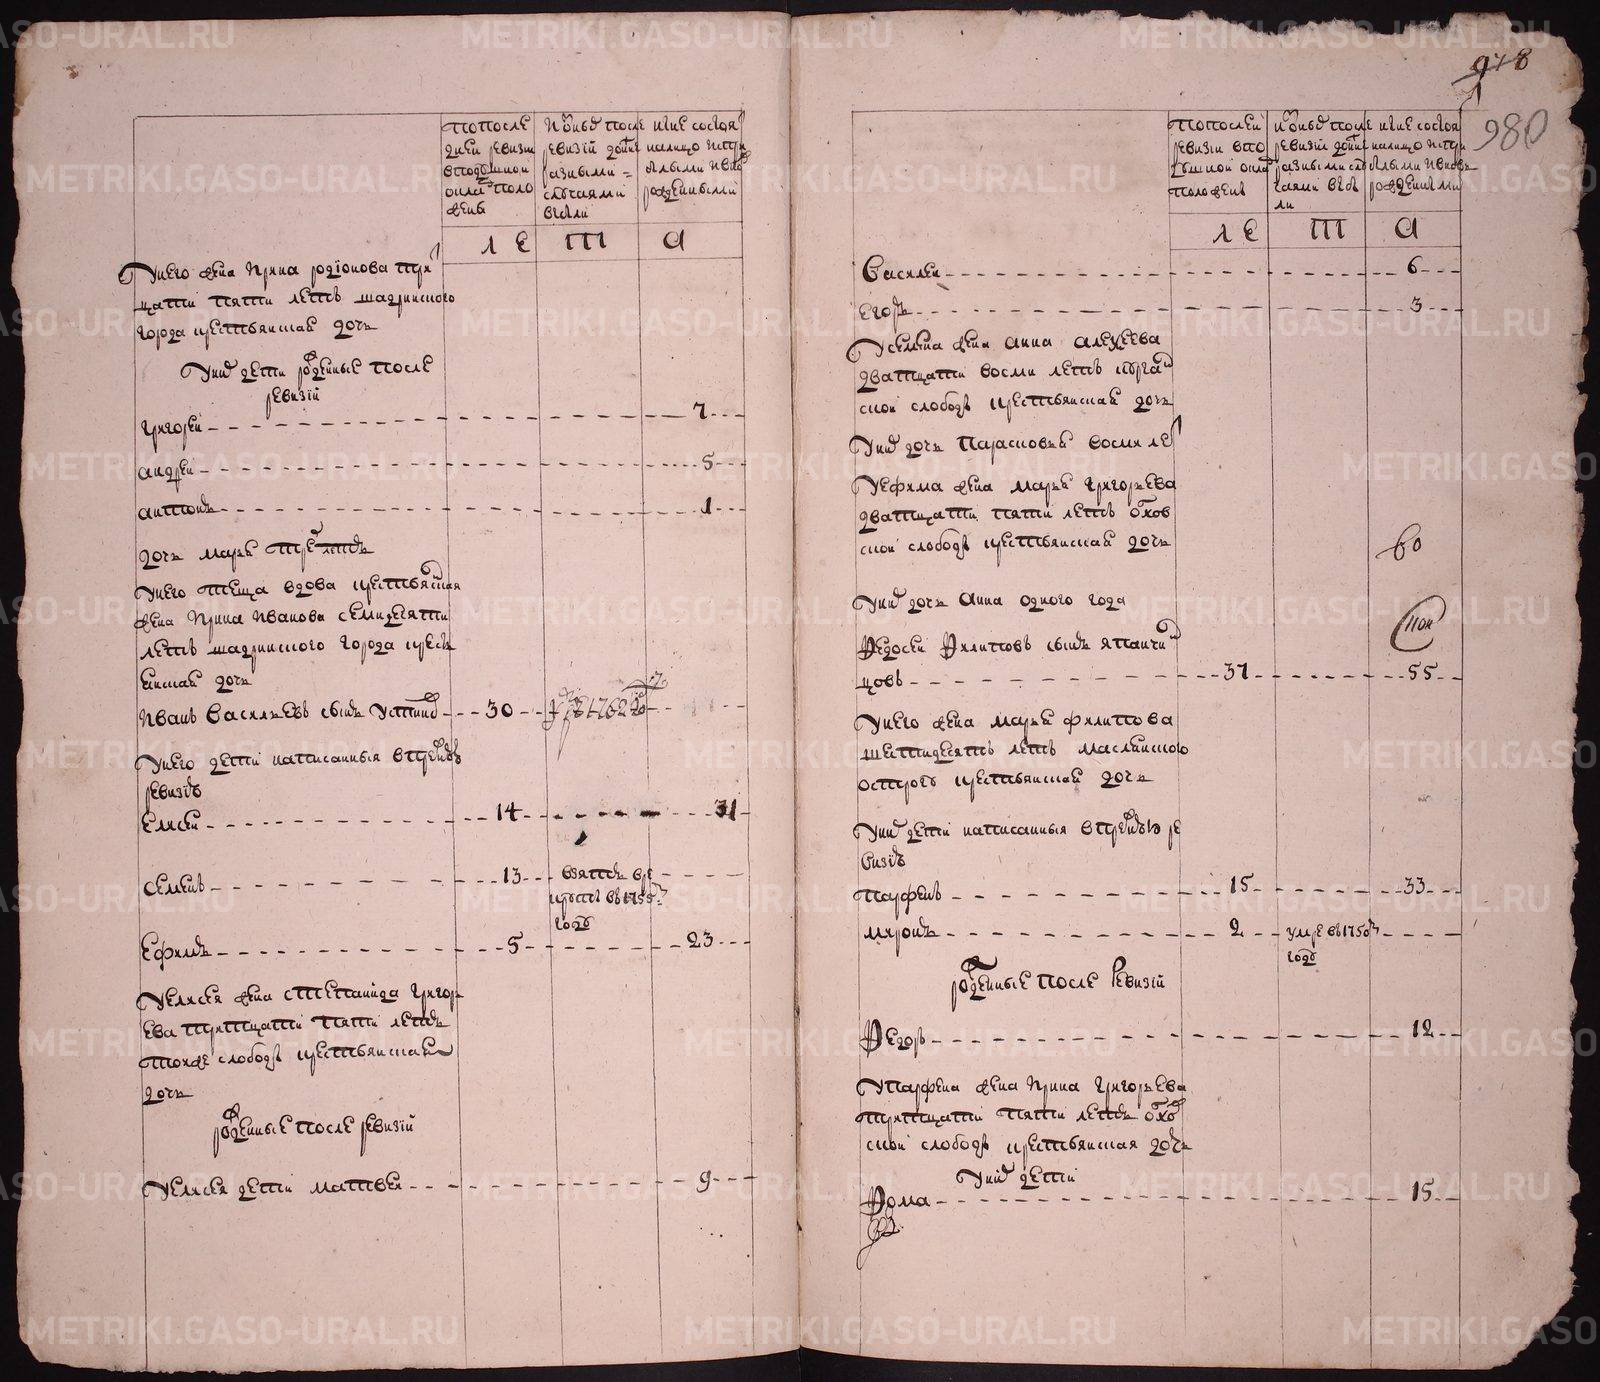 978
980
попоследней ревизии вподушной окладъ положены
исоныхъ после ревизии донне разными случаями выбыли
иныне состоя налицо испри былыми ивновь рожденными
ле
т
а
Унего жена Ирина родіонова три
цати пяти летъ шадринского
города крестьянская дочь
Унихъ дети рожденные после
ревизіи
григореи 7
андреи 5
антонъ 1
дочь марья трехъ летъ
Унего теща вдова крестьянская
жена Ирина Иванова семидесяти
летъ шадринского города кресть
янская дочь
Иванъ Васильевъ сынъ 30
Унего дети написанныя впрежнюю
ревизію
Елисеи 14 31
Семенъ 13 взятъ вре
круты в 1755
году
Ефимъ 5 23
Уелисея жена степанида григорь
ева тритцати пяти летъ
тоиже слободы крестьянская
дочь
рожденные после ревизіи
Уелисея дети матвеи 9
попоследней ревизии вподушной окладъ положены
исоныхъ после ревизии донне разными случаями выбыли
иныне состоя налицо испри былыми ивновь рожденными
ле
т
а
Василеи 6
Егоръ 3
Усемена жена анна алексеева
дватцати восми летъ
скои слободы крестьянская дочь
Унихъ дочь Парасковья восми ле
Уефима жена марья григорьева
дватцати пяти летъ
скои слободы крестьянская дочь
Унихъ дочь Анна одного года
Федосеи Филиповъ сынъ япанчин
цовъ 37 55
Унего жена марья филипова
шестидесятъ летъ маслянского
острогу крестьянская дочь
Унихъ дети написанныя впрежнюю ре
визію
парфенъ 15 33
миронъ 2 умре в 1750
году
рожденные после ревизіи
Федоръ 12
Упарфена жена Ирина григорьева
тритцати пяти летъ
скои слободы крестьянская дочь
Унихъ дети
Фома 15
METRIKI.GASO-URAL.RU